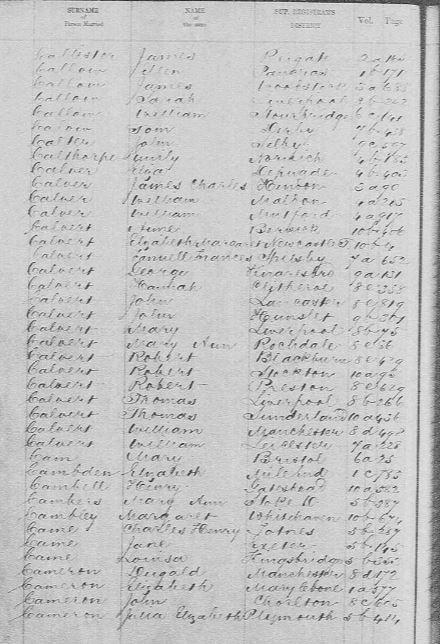 SURNAME of Person Married NAME of the same SUP. REGISTRAR'S DISTRICT Vol. Page
Callister James
Callow Ellen Pancras 1 b 171
Callow James Woodstock 3 a 685
Callow Sarah Liverpool 8 b 242
Callow William Stourbridge 6 c
Calow Tom Derby 7 b 438
Calter John Selby 9
Calthorpe Norwich 4 b 185
Calver Eliza Depwade 4 b 405
Calver James Charles Hendon 3 a 90
Calver William 4 a 215
Calver William Mutford 4 a 917
Calvert Berwick 10 b 406
Calvert Elizabeth Margaret Newcastle T. 10 b 4
Calvert Frances Spilsby 7 a 652
Calvert George Knaresbro 9 a 131
Calvert Hannah Clitheroe 8 e 358
Calvert John Lancaster 8 e 819
Calvert John Hunslet 9 b 351
Calvert Mary Liverpool 8 b 75
Calvert Mary Ann Rochdale 8 e 56
Calvert Robert Blackburn 8 e 429
Calvert Robert Stockton 10 a 96
Calvert Robert Preston 8 e 629
Calvert Thomas Liverpool 8 b 266
Calvert Thomas Sunderland 10 a 436
Calvert William Manchester 8 d 498
Calvert William Leicester 7 a 228
Cam Mary Bristol 6 a 25
Cambden Elizabeth Mile End 1 c 783
Cambell Henry Gateshead 10 a 582
Cambers Mary Ann Stoke D. 5 b 387
Cambley Margaret Whitehaven 10 b 674
Came Charles Henry Totnes 5 b 257
Came Jane Exeter 5 b 145
Came Louisa Kingsbridge 5 b
Cameron Dugald Manchester 8 d 172
Cameron Elizabeth Marylebone 1 a 577
Cameron John Chorlton 8 c 605
Cameron Julia Elizabeth Plymouth 5 b 414